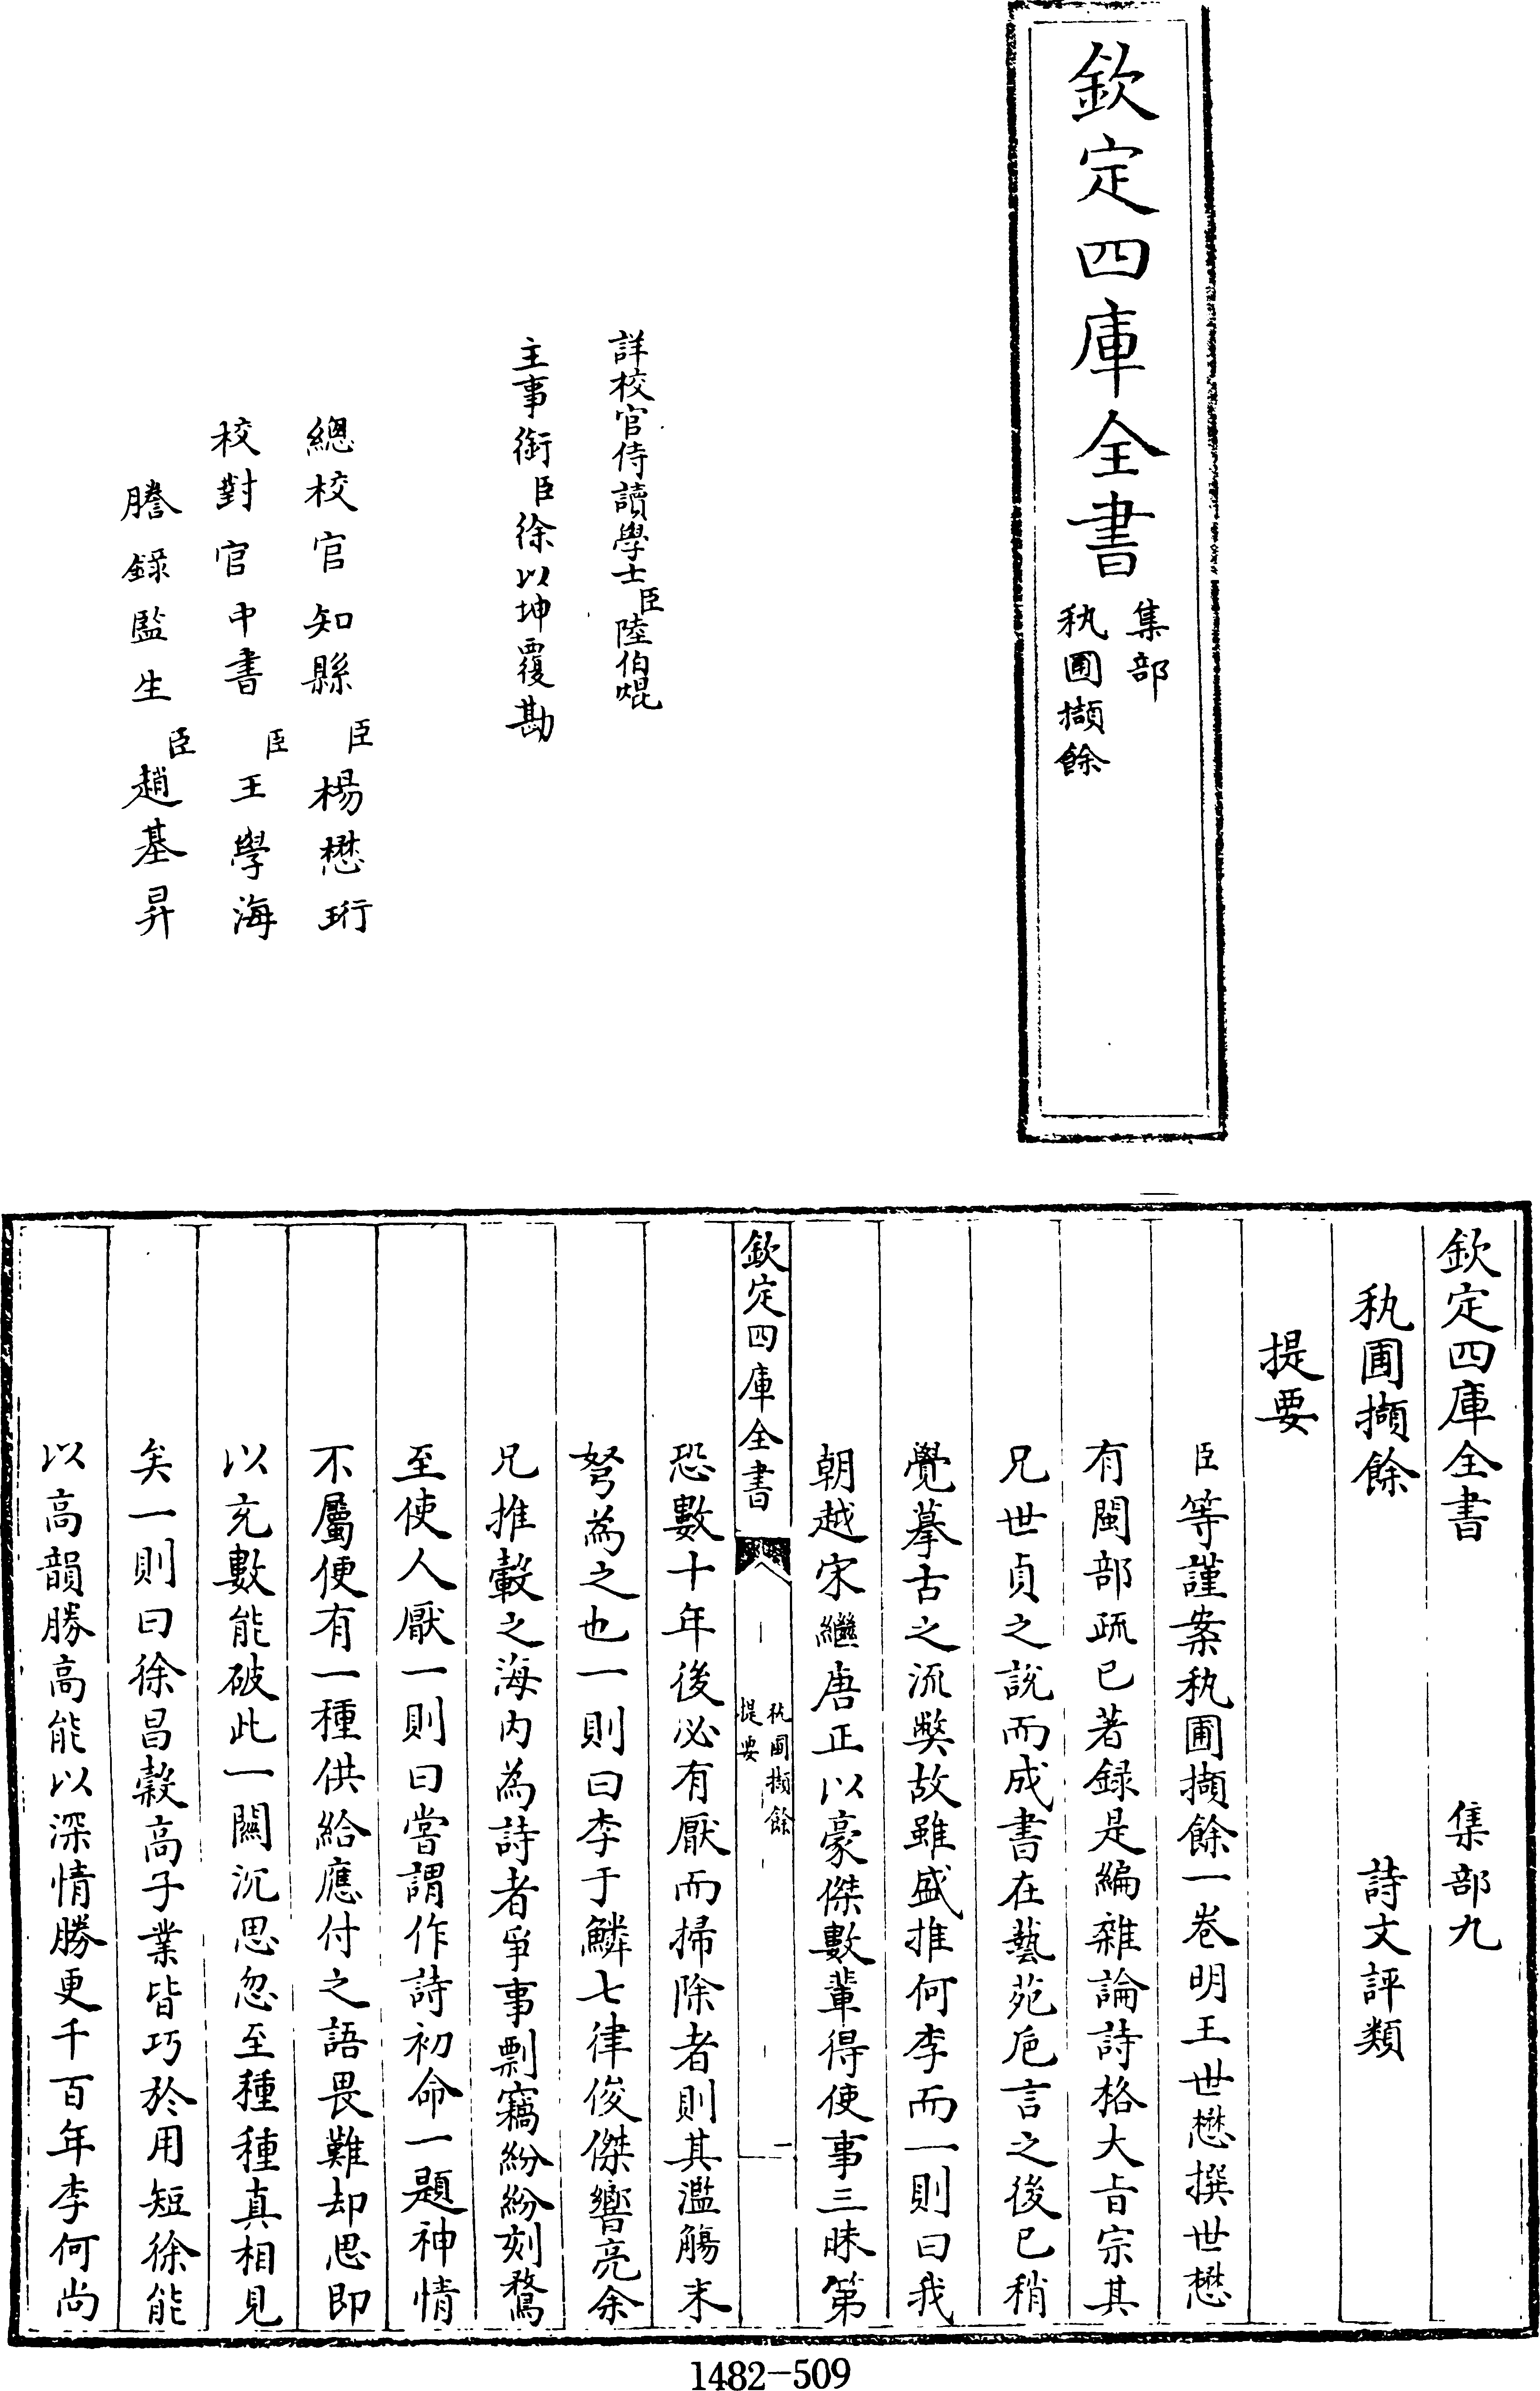 欽定四庫全書
集部
秇圃擷餘
詳校官侍讀學士臣陸伯焜
主事銜臣徐以坤覆勘
總校官知縣臣楊懋珩
校對官中書臣王學海
謄錄監生臣趙基昇
欽定四庫全書 集部九
秇圃擷餘 詩文評類
提要
臣等謹案秇圃擷餘一卷明王世懋撰世懋
有閩部疏已著録是編雜論詩格大旨宗其
兄世貞之說而成書在藝苑巵言之後已稍
覺摹古之流弊故雖盛推何李而一則曰我
朝越宋繼唐正以豪傑數輩得使事三昧第
欽定四庫全書
秇圃擷餘
提要
一
恐數十年後必有厭而掃除者則其濫觴末
弩為之也一則曰李于鱗七律俊傑響亮余
兄推轂之海内為詩者爭事剽竊紛紛刻鶩
至使人厭一則曰嘗謂作詩初命一題神情
不屬便有一種供給應付之語畏難却思即
以充數能破此一關沉思忽至種種真相見
矣一則曰徐昌穀高子業皆巧於用短徐能
以高韻勝高能以深情勝更千百年李何尚
1482-509